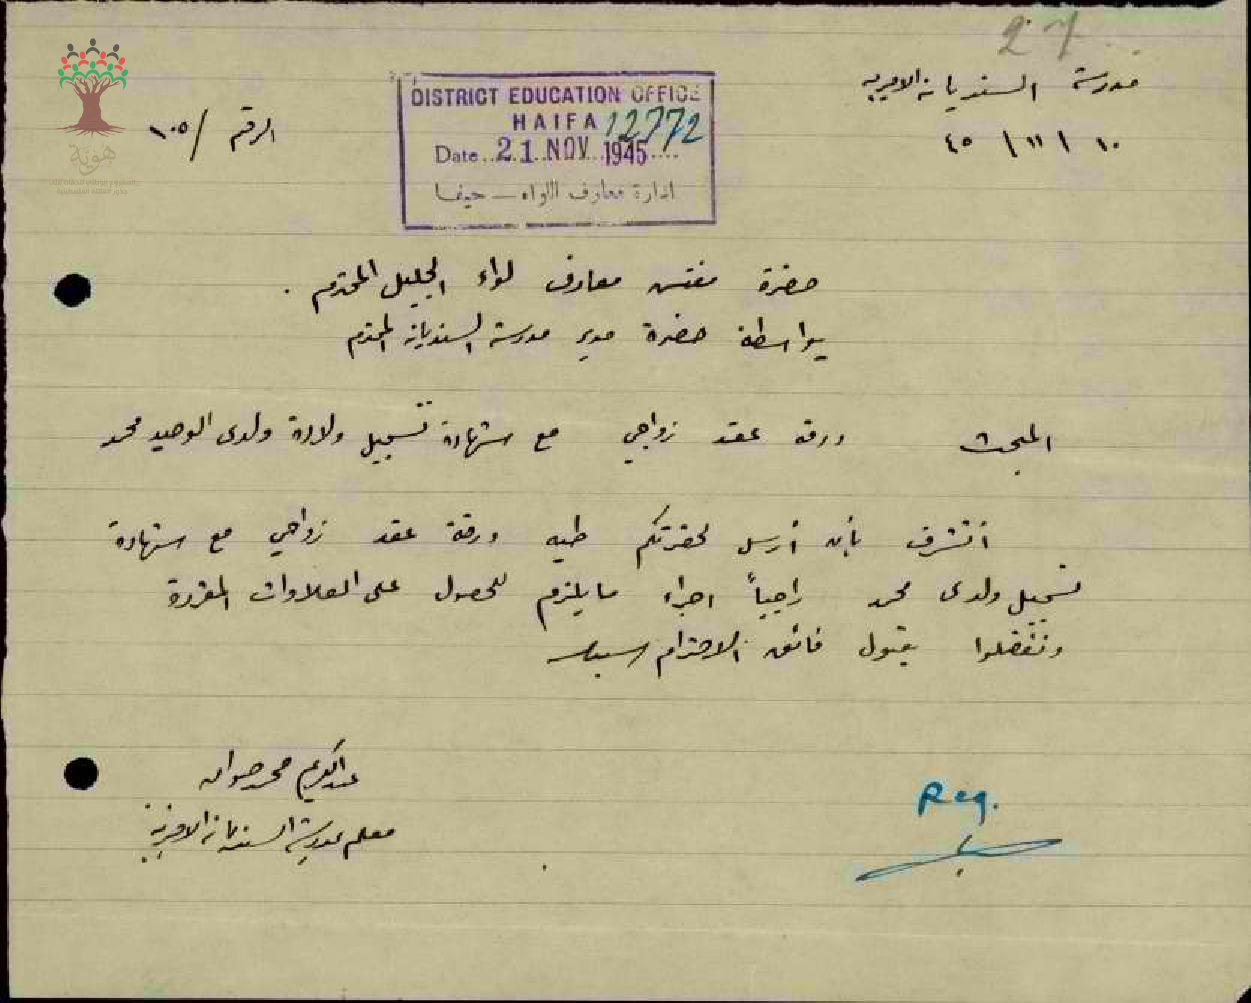 27
مدرسة السنديانة الاميرية
١٠ / ١١ / ٤٥
الرقم / ١٠٥
DISTRICT EDUCATION OFFICE
HAIFA 12772
Date 21 NOV 1945
ادارة معارف اللواء — حيفا
هوية
حضرة مفتش معارف لواء الجليل المحترم .
بواسطة حضرة مدير مدرسة السنديانة المحترم
المبحث ورقة عقد زواجي مع شهادة تسجيل ولادة ولدى الوحيد محمد
اتشرف بأن أرسل لحضرتكم طيه ورقة عقد زواجي مع شهادة
تسجيل ولدى محمد راجياً اجراء ما يلزم للحصول على العلاوات المقررة
وتفضلوا بقبول فائق الاحترام سيدي
عبد الكريم محمد
معلم بمدرسة السنديانة الاميرية
Reg.